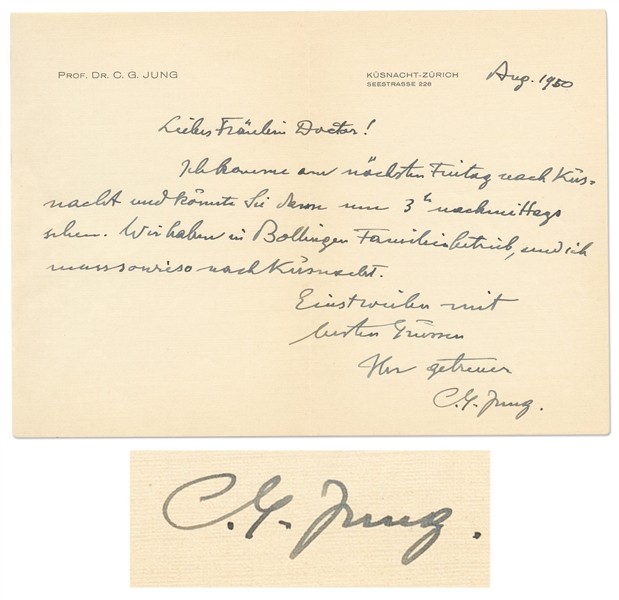 PROF. DR. C. G. JUNG
KÜSNACHT-ZÜRICH
SEESTRASSE 228
Aug. 1950
Liebes Fräulein Doctor!
Ich komme am nächsten Freitag nach Küs-
nacht und könnte Sie dann um 3h nachmittags
sehen. Wir haben in Bollingen Familienbetrieb, und ich
muss sowieso nach Küsnacht.
Einstweilen mit
besten Grüssen
Ihr getreuer
C. G. Jung.
C. G. Jung.